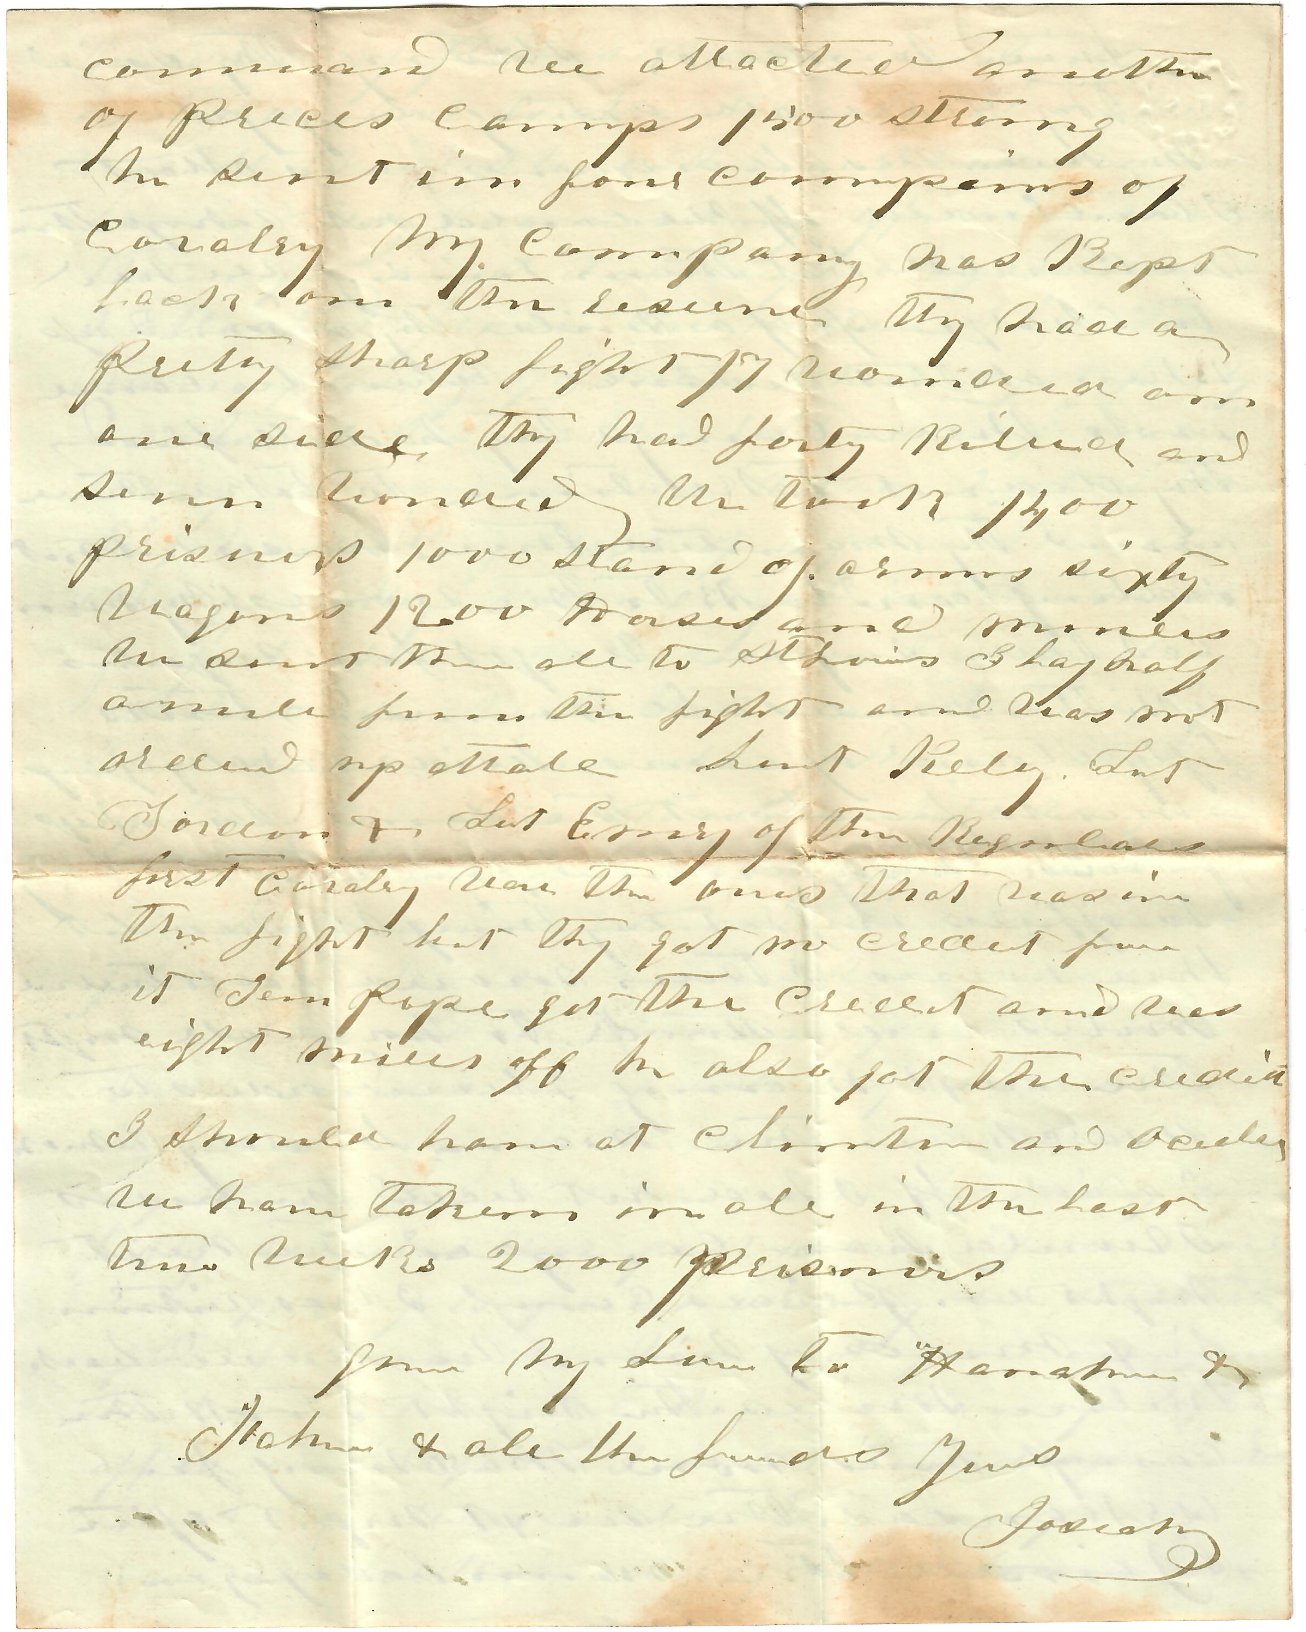 command we attacted another
of Prices Camps 1500 strong
We sent in four compains of
Cavalry My Company was Kept
back on the reserve thy had a
Pretty sharp fight 17 wounded on
one side thy had forty Killed and
seven wonded We took 1400
prisners 1000 stand of arms sixty
Wagons 1200 Horses and mules
We sent them all to St Louis I lay half
a mile from the fight and was not
ordered up attall Lieut Kely. Lut
Gordon & Lut Emry of the Regulars
first Cavalry ware the ones that was in
the fight but thy got no credit for
it Jen Pope got the Credit and was
eight miles off he also got the credit
I should have at Clinton and
we have taken in all in the last
two weeks 2000 Prisoners
give My Love to Hannah &
& all the friends Yours
Josiah